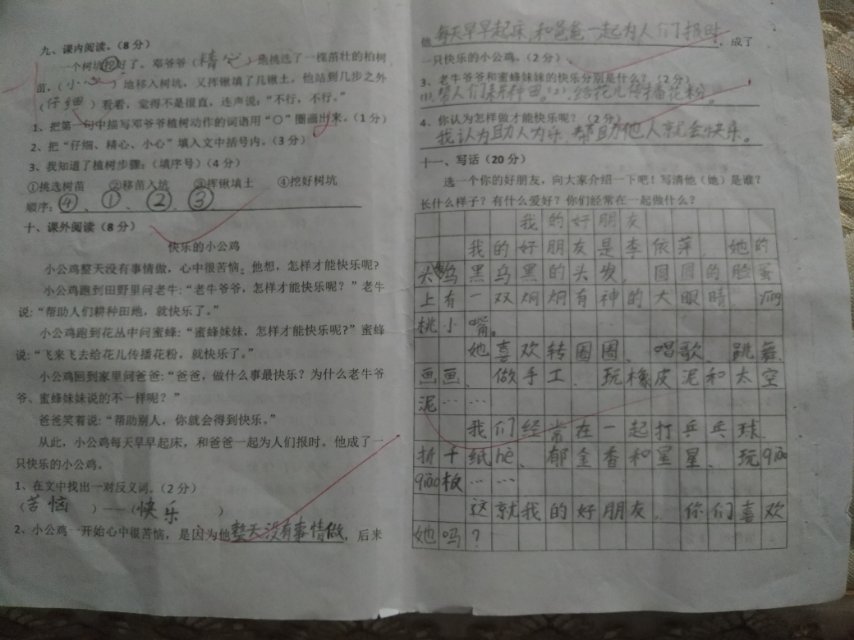 九、课内阅读。(8分)
一个树坑挖好了。邓爷爷(精心)地挑选了一棵茁壮的柏树
苗,(小心)地移入树坑,又挥锹填了几锹土。他站到几步之外
(仔细)看看,觉得不是很直,连声说:“不行,不行。”
1、把第一句中描写邓爷爷植树动作的词语用“○”圈画出来。(1分)
2、把“仔细、精心、小心”填入文中括号内。(3分)
3、我知道了植树步骤:(填序号)(4分)
①挑选树苗 ②移苗入坑 ③挥锹填土 ④挖好树坑
顺序:④、①、②、③
十、课外阅读(8分)
快乐的小公鸡
小公鸡整天没有事情做,心中很苦恼;他想,怎样才能快乐呢?
小公鸡跑到田野里问老牛:“老牛爷爷,怎样才能快乐呢?”老牛
说:“帮助人们耕种田地,就快乐了。”
小公鸡跑到花丛中问蜜蜂:“蜜蜂妹妹,怎样才能快乐呢?”蜜蜂
说:“飞来飞去给花儿传播花粉,就快乐了。”
小公鸡回到家里问爸爸:“爸爸,做什么事最快乐?为什么老牛爷
爷、蜜蜂妹妹说的不一样呢?”
爸爸笑着说:“帮助别人,你就会得到快乐。”
从此,小公鸡每天早早起床,和爸爸一起为人们报时。他成了一
只快乐的小公鸡。
1、在文中找出一对反义词。(2分)
(苦恼)——(快乐)
2、小公鸡一开始心中很苦恼,是因为他整天没有事情做,后来
他每天早早起床,和爸爸一起为人们报时,成了
一只快乐的小公鸡。(2分)
3、老牛爷爷和蜜蜂妹妹的快乐分别是什么?(2分)
田。(2)给花儿传播花粉。
4、你认为怎样做才能快乐呢?(2分)
我认为助人为乐,帮助他人就会快乐。
十一、写话(20分)
选一个你的好朋友,向大家介绍一下吧!写清他(她)是谁?
长什么样子?有什么爱好?你们经常在一起做什么?
我的好朋友
我的好朋友是李依萍,她的
头乌黑乌黑的头发,圆圆的脸蛋
上有一双炯炯有神的大眼睛,
桃小嘴。
她喜欢转圈圈、唱歌、跳舞、
画画、做手工、玩橡皮泥和太空
泥……
我们经常在一起打乒乓球、
折千纸hè、郁金香和星星、玩
板……
这就我的好朋友,你们喜欢
她吗?